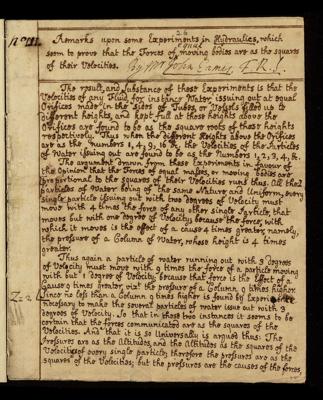 26
Remarks upon some Experiments in Hydraulics, which
seem to prove that the Forces of equal moving bodies are as the squares
of their Velocities. By Mr John Eames, F.R.S.
The result, and Substance of these Experiments is that the
Velocities of any Fluid, for instance Water issuing out at equal
Orifices made in the Sides of Tubes, or Vessels filled up to
different heights, and kept full at those heights above the
Orifices are found to be as the square roots of these heights
respectively. Thus when the different Heights above the Orifices
are as the numbers 1, 4, 9, 16 &c, the Velocities of the Particles
of Water issuing out are found to be as the Numbers 1, 2, 3, 4 &c.
The argument drawn from these Experiments in favour of
the Opinion that the Forces of equal masses, or moving bodies are
proportional to the squares of their Velocities runs thus. All the
particles of Water being of the same Nature and Uniform, every
single particle issuing out with two degrees of Velocity must
move with 4 times the force of any other single Particle that
moves but with one degree of Velocity; because the force, with
which it moves is the effect of a cause 4 times greater, namely,
the pressure of a Column of Water, whose height is 4 times
greater.
Thus again a particle of water running out with 3 degrees
of Velocity must move with 9 times the force of a particle moving
with but 1 degree of Velocity, because that force is the effect of a
Cause 9 times greater, viz. the pressure of a Column 9 times higher.
Since no less than a Column 9 times higher is found by Experience
necessary to make the several particles of water issue out with 3
degrees of Velocity. So that in these two instances it seems to be
certain that the forces communicated are as the squares of the
Velocities. And that it is so Universally is argued thus: The
Pressures are as the Altitudes, and the Altitudes as the squares of the
Velocities of every single particle, therefore the pressures are as the
squares of the Velocities; but the pressures are the causes of the forces,